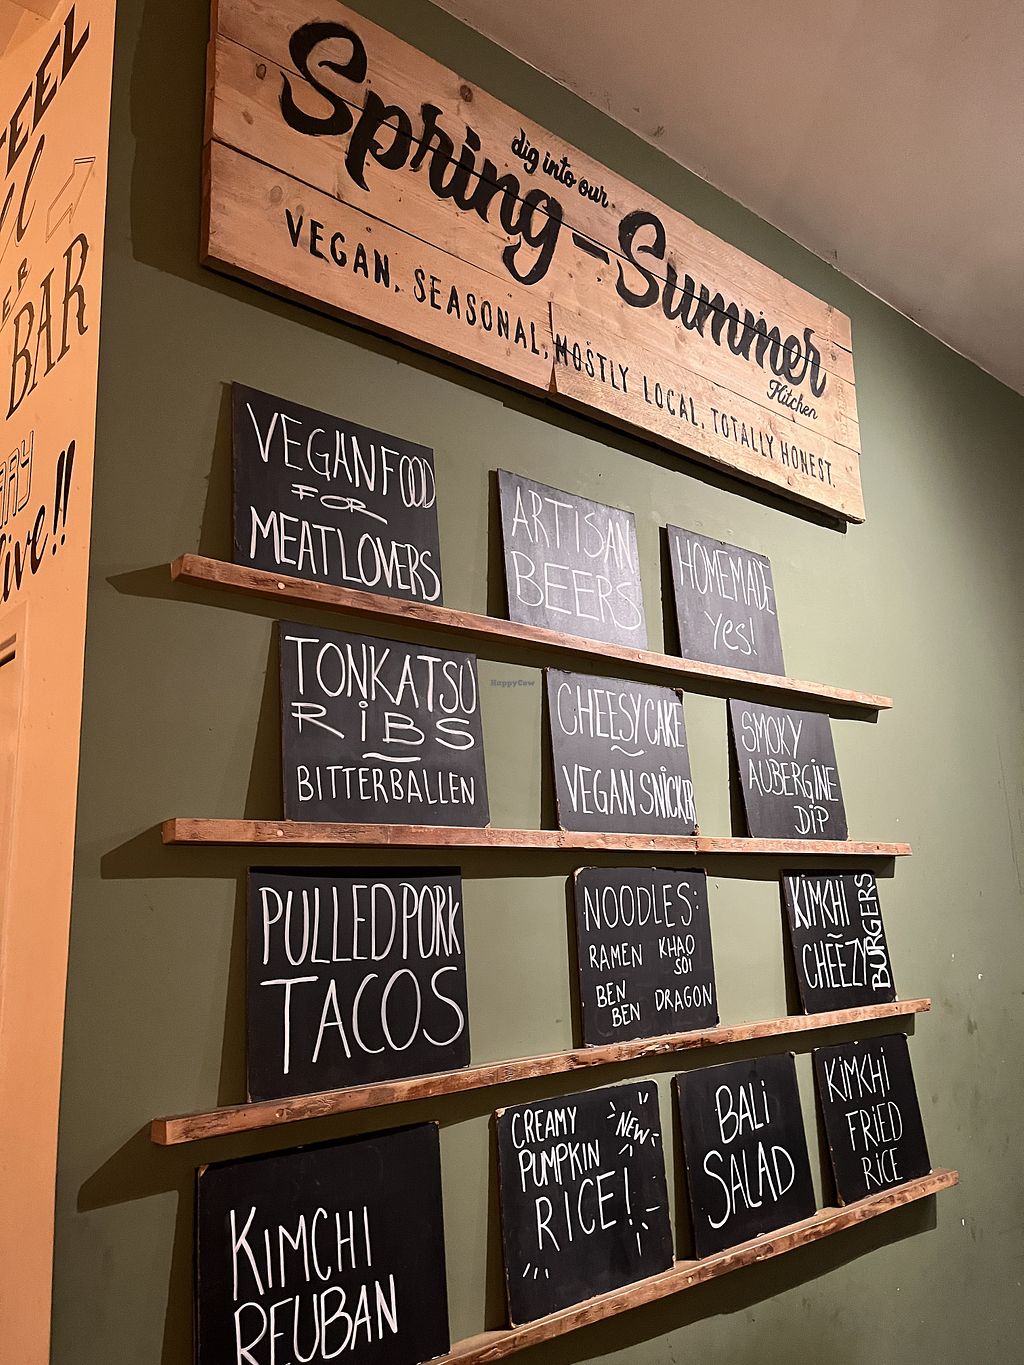 dig into our
Spring-Summer
Kitchen
VEGAN, SEASONAL, MOSTLY LOCAL, TOTALLY HONEST.
VEGAN FOOD
FOR
MEATLOVERS
ARTISAN
BEERS
HOMEMADE
yes!
TONKATSU
RIBS
BITTERBALLEN
CHEESY CAKE
VEGAN SNICKER
SMOKY
AUBERGINE
DIP
PULLED PORK
TACOS
NOODLES:
RAMEN KHAO SOI
BEN BEN DRAGON
KIMCHI
CHEEZY
BURGERS
KIMCHI
REUBAN
CREAMY
PUMPKIN
RICE!
NEW
BALI
SALAD
KIMCHI
FRIED
RICE
BAR
HappyCow